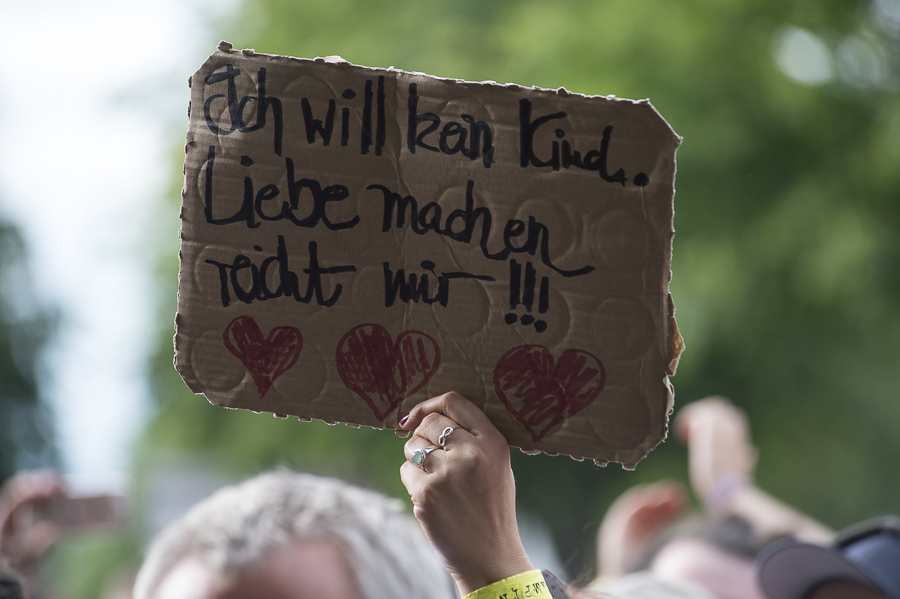 Ich will kein Kind.
Liebe machen
reicht mir !!!